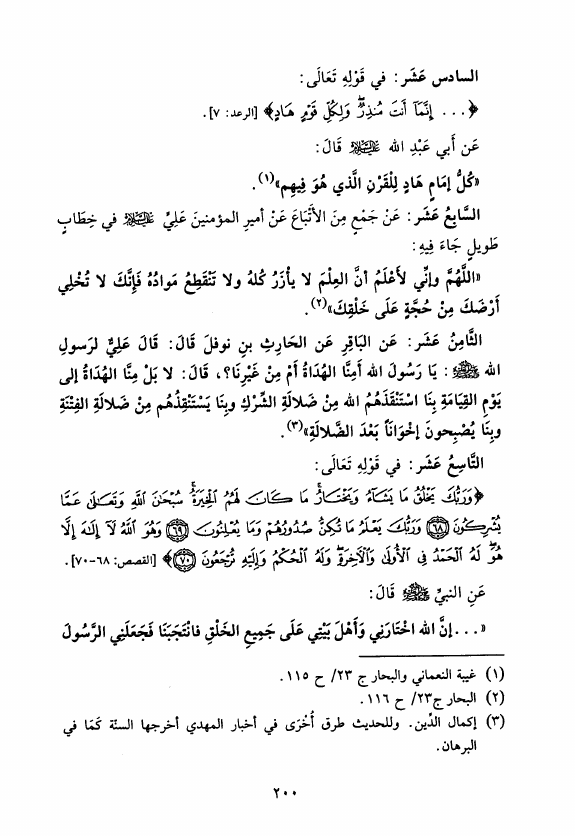 السادس عَشَر: في قَوْلِهِ تَعَالَى:
﴿... إِنَّمَآ أَنتَ مُنذِرٌۖ وَلِكُلِّ قَوْمٍ هَادٍ﴾ [الرعد: ٧].
عَن أَبي عَبْدِ الله عَلَيْهِ السَّلَام قَالَ:
«كُلُّ إمَامٍ هَادٍ لِلْقَرْنِ الَّذي هُوَ فِيهِم»(١).
السَّابِعُ عَشَر: عَنْ جَمْعٍ مِنَ الأَتْبَاعَ عَنْ أميرِ المؤمنينَ عَلِيٍّ عَلَيْهِ السَّلَام في خِطَابٍ
طَويلٍ جَاءَ فِيهِ:
«اللَّهُمَّ وإنِّي لأَعْلَمُ أنَّ العِلْمَ لا يأْزَرُ كلهُ ولا تَنْقَطِعُ مَوادُهُ فَإِنَّكَ لا تُخْلِي
أَرْضَكَ مِنْ حُجَّةٍ عَلَى خَلْقِكَ»(٢).
الثَّامِنُ عَشَر: عَنِ البَاقِرِ عَنِ الحَارِثِ بنِ نوفلَ قَالَ: قَالَ عَلِيٌّ لرَسولِ
الله ﷺ: يَا رَسُولَ الله أَمِنَّا الهُدَاةُ أَمْ مِنْ غَيْرِنَا؟، قَالَ: لا بَلْ مِنَّا الهُدَاةُ إلى
يَوْمِ القِيَامَةِ بِنَا اسْتَنْقَذَهُمُ الله مِنْ ضَلالَةِ الشِّرْكِ وبِنَا يَسْتَنْقِذُهُم مِنْ ضَلالَةِ الفِتْنَةِ
وبِنَا يُصْبِحونَ إخْوَاناً بَعْدَ الضَّلالَةِ»(٣).
التَّاسِعُ عَشَر: في قَوْلِهِ تَعَالَى:
﴿وَرَبُّكَ يَخْلُقُ مَا يَشَآءُ وَيَخْتَارُۗ مَا كَانَ لَهُمُ الْخِيَرَةُۚ سُبْحَانَ اللَّهِ وَتَعَالَى عَمَّا
يُشْرِكُونَ ﴿٦٨﴾ وَرَبُّكَ يَعْلَمُ مَا تُكِنُّ صُدُورُهُمْ وَمَا يُعْلِنُونَ ﴿٦٩﴾ وَهُوَ اللَّهُ لَآ إِلَٰهَ إِلَّا
هُوَۖ لَهُ الْحَمْدُ فِي الْأُولَىٰ وَالْآخِرَةِۖ وَلَهُ الْحُكْمُ وَإِلَيْهِ تُرْجَعُونَ ﴿٧٠﴾﴾ [القصص: ٦٨-٧٠].
عَنِ النبيِّ ﷺ قَالَ:
«...إنَّ الله اخْتَارَنِي وَأَهْلَ بَيْتِي عَلَى جَمِيعِ الخَلْقِ فانْتَجَبَنَا فَجَعَلَنِي الرَّسُولَ
(١) غيبة النعماني والبحار ج ٢٣/ ح ١١٥.
(٢) البحار ج٢٣/ ح ١١٦.
(٣) إكمال الدِّين. وللحديث طرق أُخْرَى في أخبار المهدي أخرجها السنّة كَمَا في
البرهان.
٢٠٠